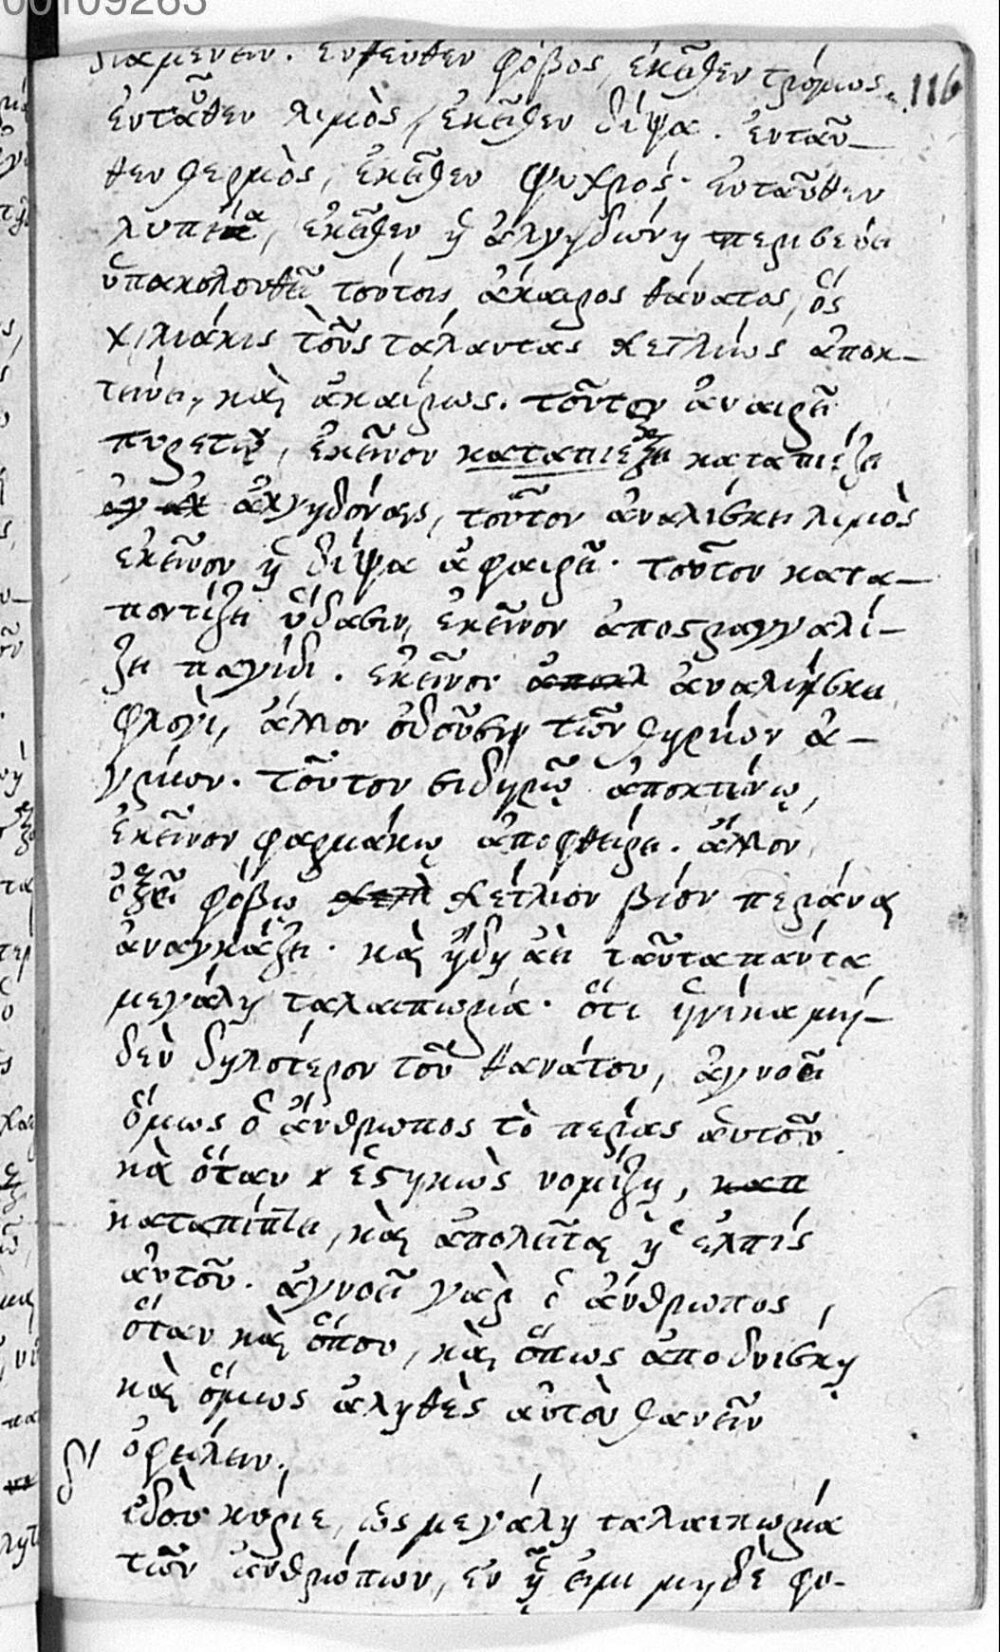 00109263
116
διαμένειν. ἐντεῦθεν φόβος, ἐκεῖθεν τρόμος.
ἐνταῦθεν λιμὸς, ἐκεῖθεν δίψα. ἐνταῦ–
θεν θερμὸς, ἐκεῖθεν ψυχρός· ἐνταῦθεν
ἐκεῖθεν ἡ
ὑπακολουθεῖ τούτοις ἄκαιρος θάνατος, ὅς
χιλιάκις τοὺς τάλαντας σχετλίως ἀποκ–
τείνει, καὶ ἀκαίρως. τοῦτον ἀναιρεῖ
πυρετῷ, ἐκεῖνον καταπιέζει καταπιέζει
ἀλγηδόναις, τοῦτον ἀναλίσκει λιμὸς
ἐκεῖνον ἡ δίψα ἀφαιρεῖ· τοῦτον κατα–
ποντίζει ὕδασιν, ἐκεῖνον ἀποστραγγαλί–
ζει παγίδι. ἐκεῖνον ἀποκλ ἀναλίσκει
φλογὶ, ἄλλον ὀδοῦσιν τῶν θηρίων ἀ–
γρίων. τοῦτον σιδηρῷ ἀποκτείνῳ,
ἐκεῖνον φαρμάκῳ ἀποφθείρει. ἄλλον
ὀξεῖ φόβω σχετλ σχέτλιον βίον περάναι
ἀναγκάζει· καὶ ἤδη ἀεὶ ταῦτα πάντα
μεγάλη ταλαιπωρία· ὅτι ἡνίκα μη–
δὲν δηλότερον τοῦ θανάτου, ἀγνοεῖ
ὅμως ὁ ἄνθρωπος τὸ πέρας αὑτοῦ.
καὶ ὅταν ἑστηκὼς νομίζῃ, καπ
καταπίπτει, καὶ ἀπολεῖται ἡ ἐλπίς
αὐτοῦ. ἀγνοεῖ γὰρ ὁ ἄνθρωπος,
ὅταν καὶ ὅπου, καὶ ὅπως ἀποθνίσκῃ
καὶ ὅμως ἀληθὲς αὐτὸν θανεῖν
ὀφείλειν.
δ΄
ἰδοὺ κύριε, ὡς μεγάλη ταλαιπωρία
τῶν ἀνθρώπων, ἐν ᾗ εἰμι μηδὲ φο–